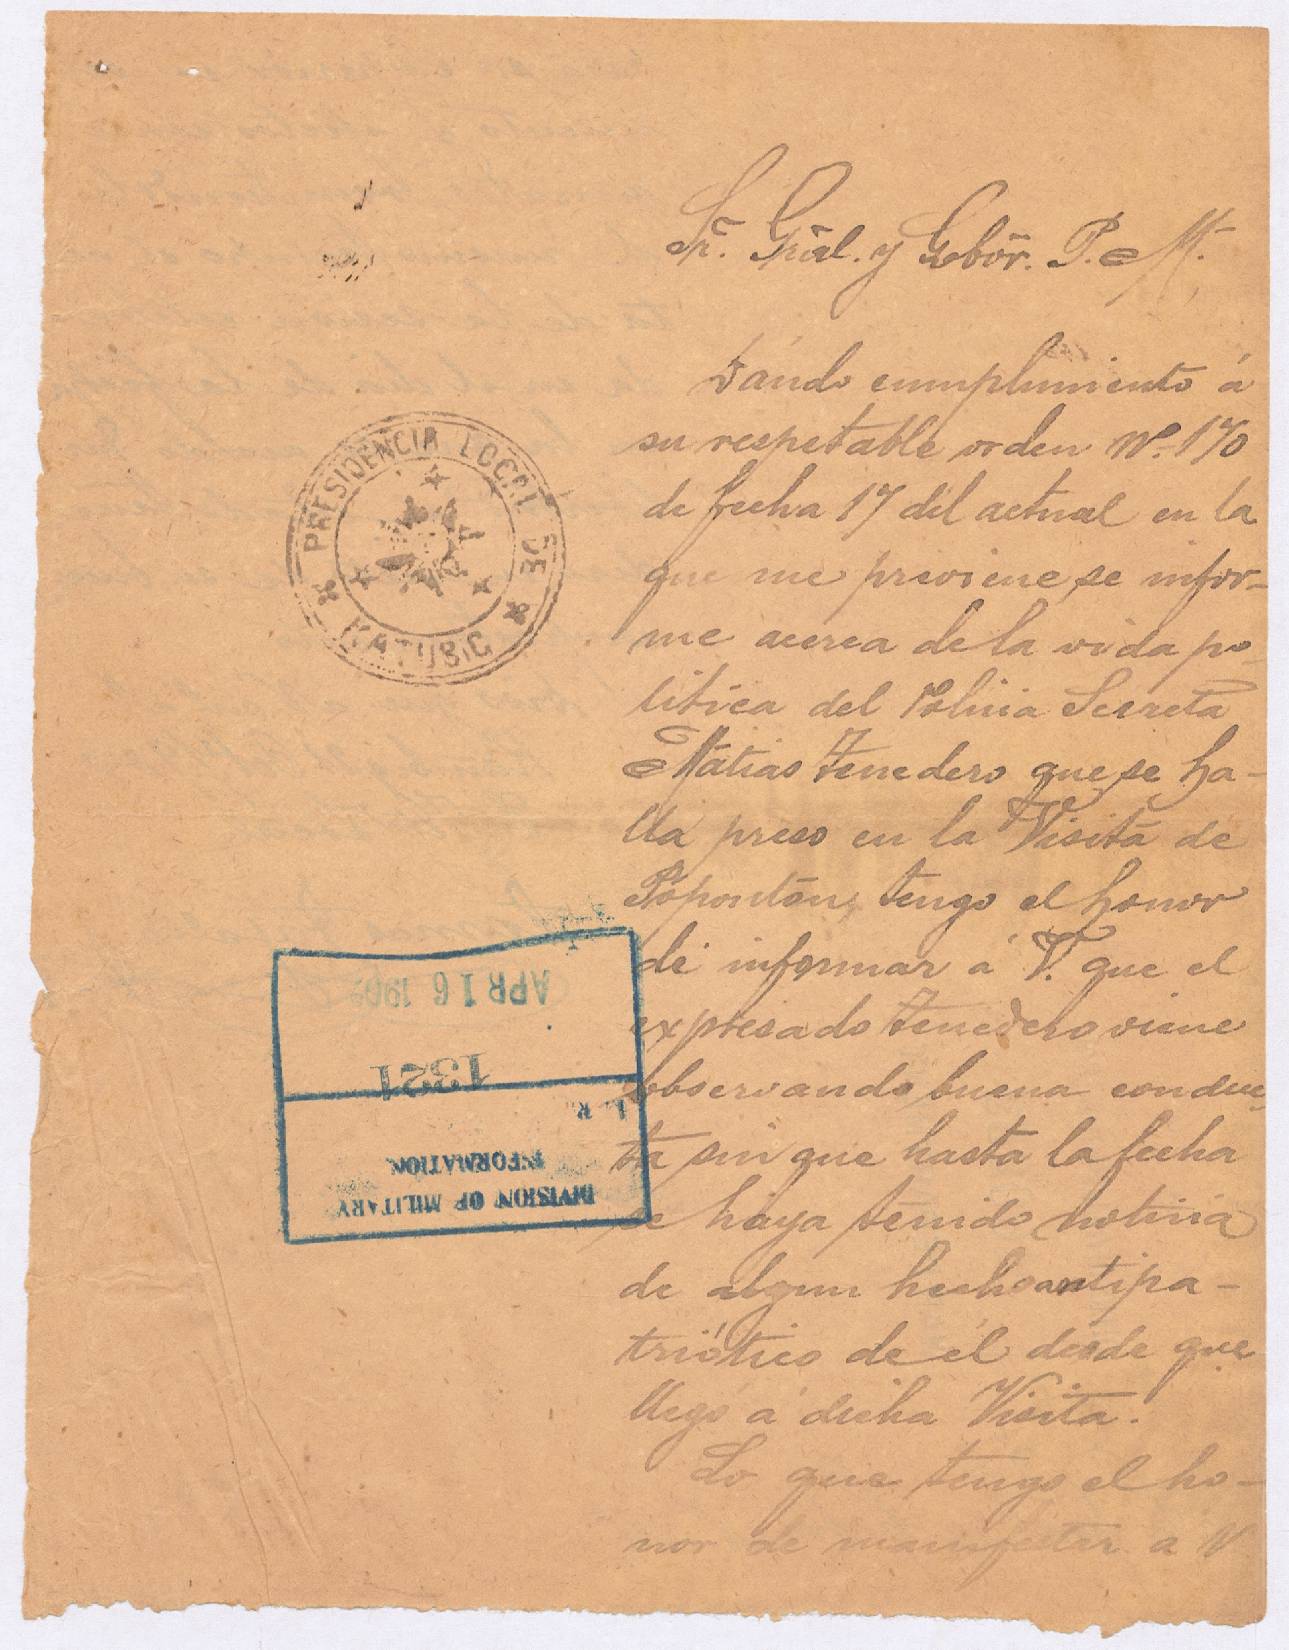 Sr. Grãl. y Gobõr. P. M.
Dándo cumplimiento á
su respetable orden Nº. 170
de fecha 17 del actual en la
que me previene se infor-
me acerca de la vida po-
lítica del Policia Secreta
Mátias Tenedero que se ha-
lla preso en la Visita de
Pópontón, tengo el honor
de informar á V. que el
expresado Tenedero viene
observando buena conduc-
ta sin que hasta la fecha
se haya tenido noticia
de algun hecho antipa-
triótico de él desde que
llegó á dicha Visita.
Lo que tengo el ho-
nor de manifestar a V
PRESIDENCIA LOCAL DE
KATUBIG
DIVISION OF MILITARY
INFORMATION
1321
APR 16 190